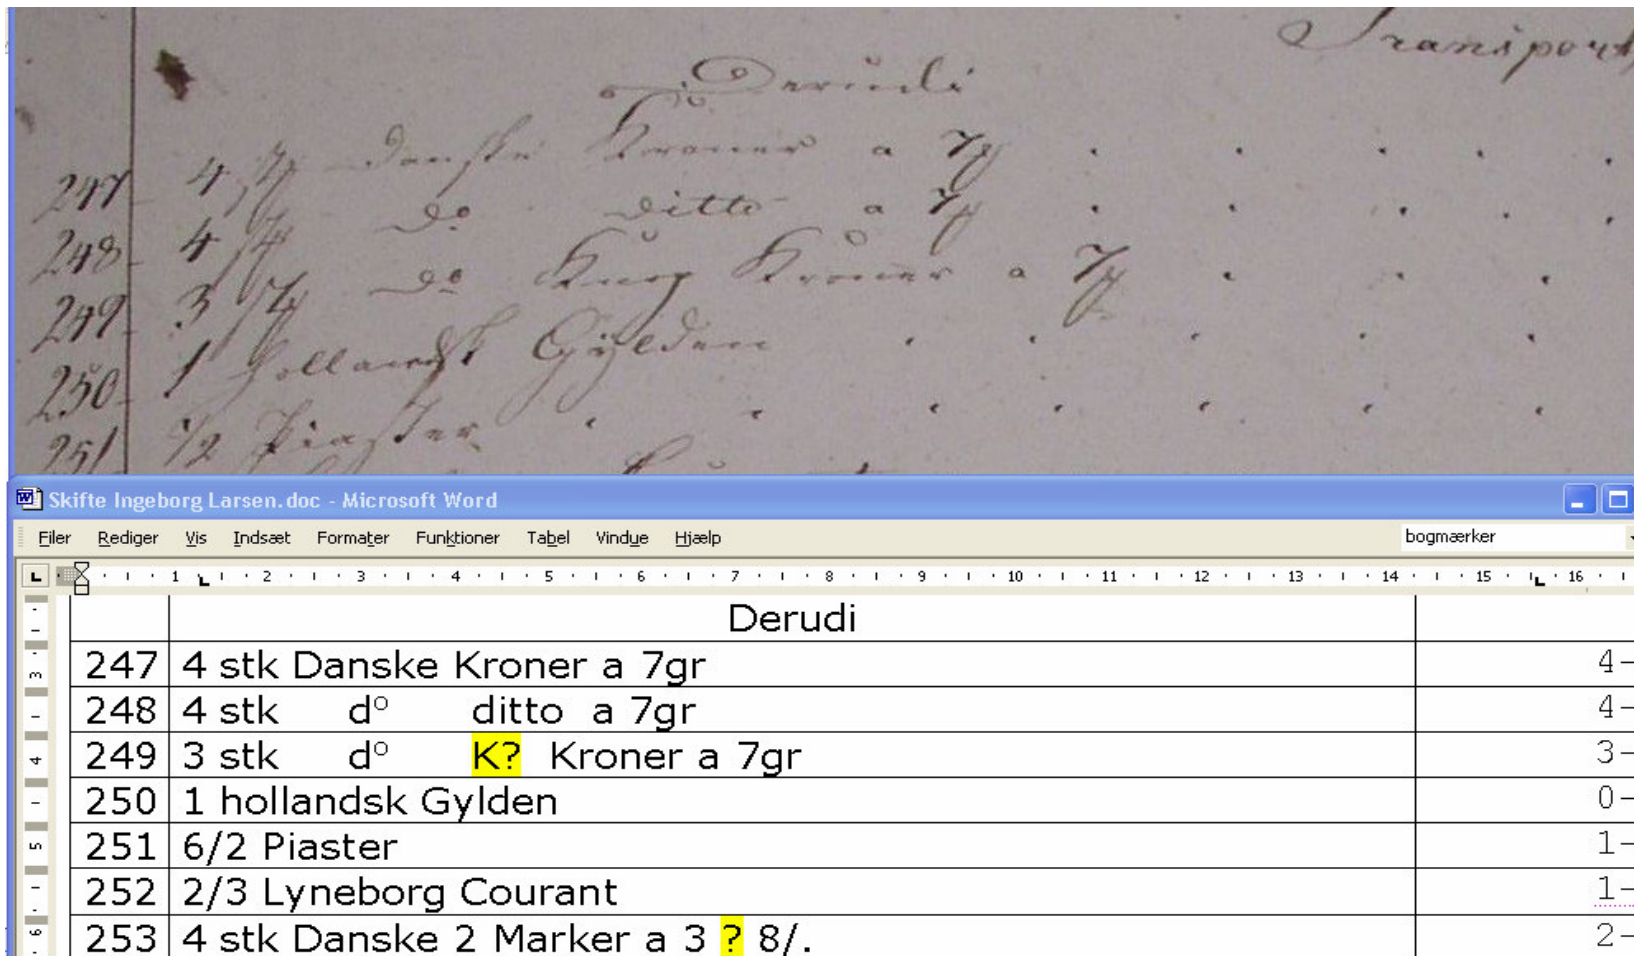 Transport
Derudi
247 4 stk danske Kroner a 7
248 4 stk do ditto a 7
249 3 stk do Kroner a 7
250 1 hollandsk Gylden
251 1/2 Piaster
Skifte Ingeborg Larsen.doc - Microsoft Word
Filer Rediger Vis Indsæt Formater Funktioner Tabel Vindue Hjælp bogmærker
1 2 3 4 5 6 7 8 9 10 11 12 13 14 15 16
Derudi
247 4 stk Danske Kroner a 7gr 4-
248 4 stk dº ditto a 7gr 4-
249 3 stk dº K? Kroner a 7gr 3-
250 1 hollandsk Gylden 0-
251 6/2 Piaster 1-
252 2/3 Lyneborg Courant 1-
253 4 stk Danske 2 Marker a 3 ? 8/. 2-